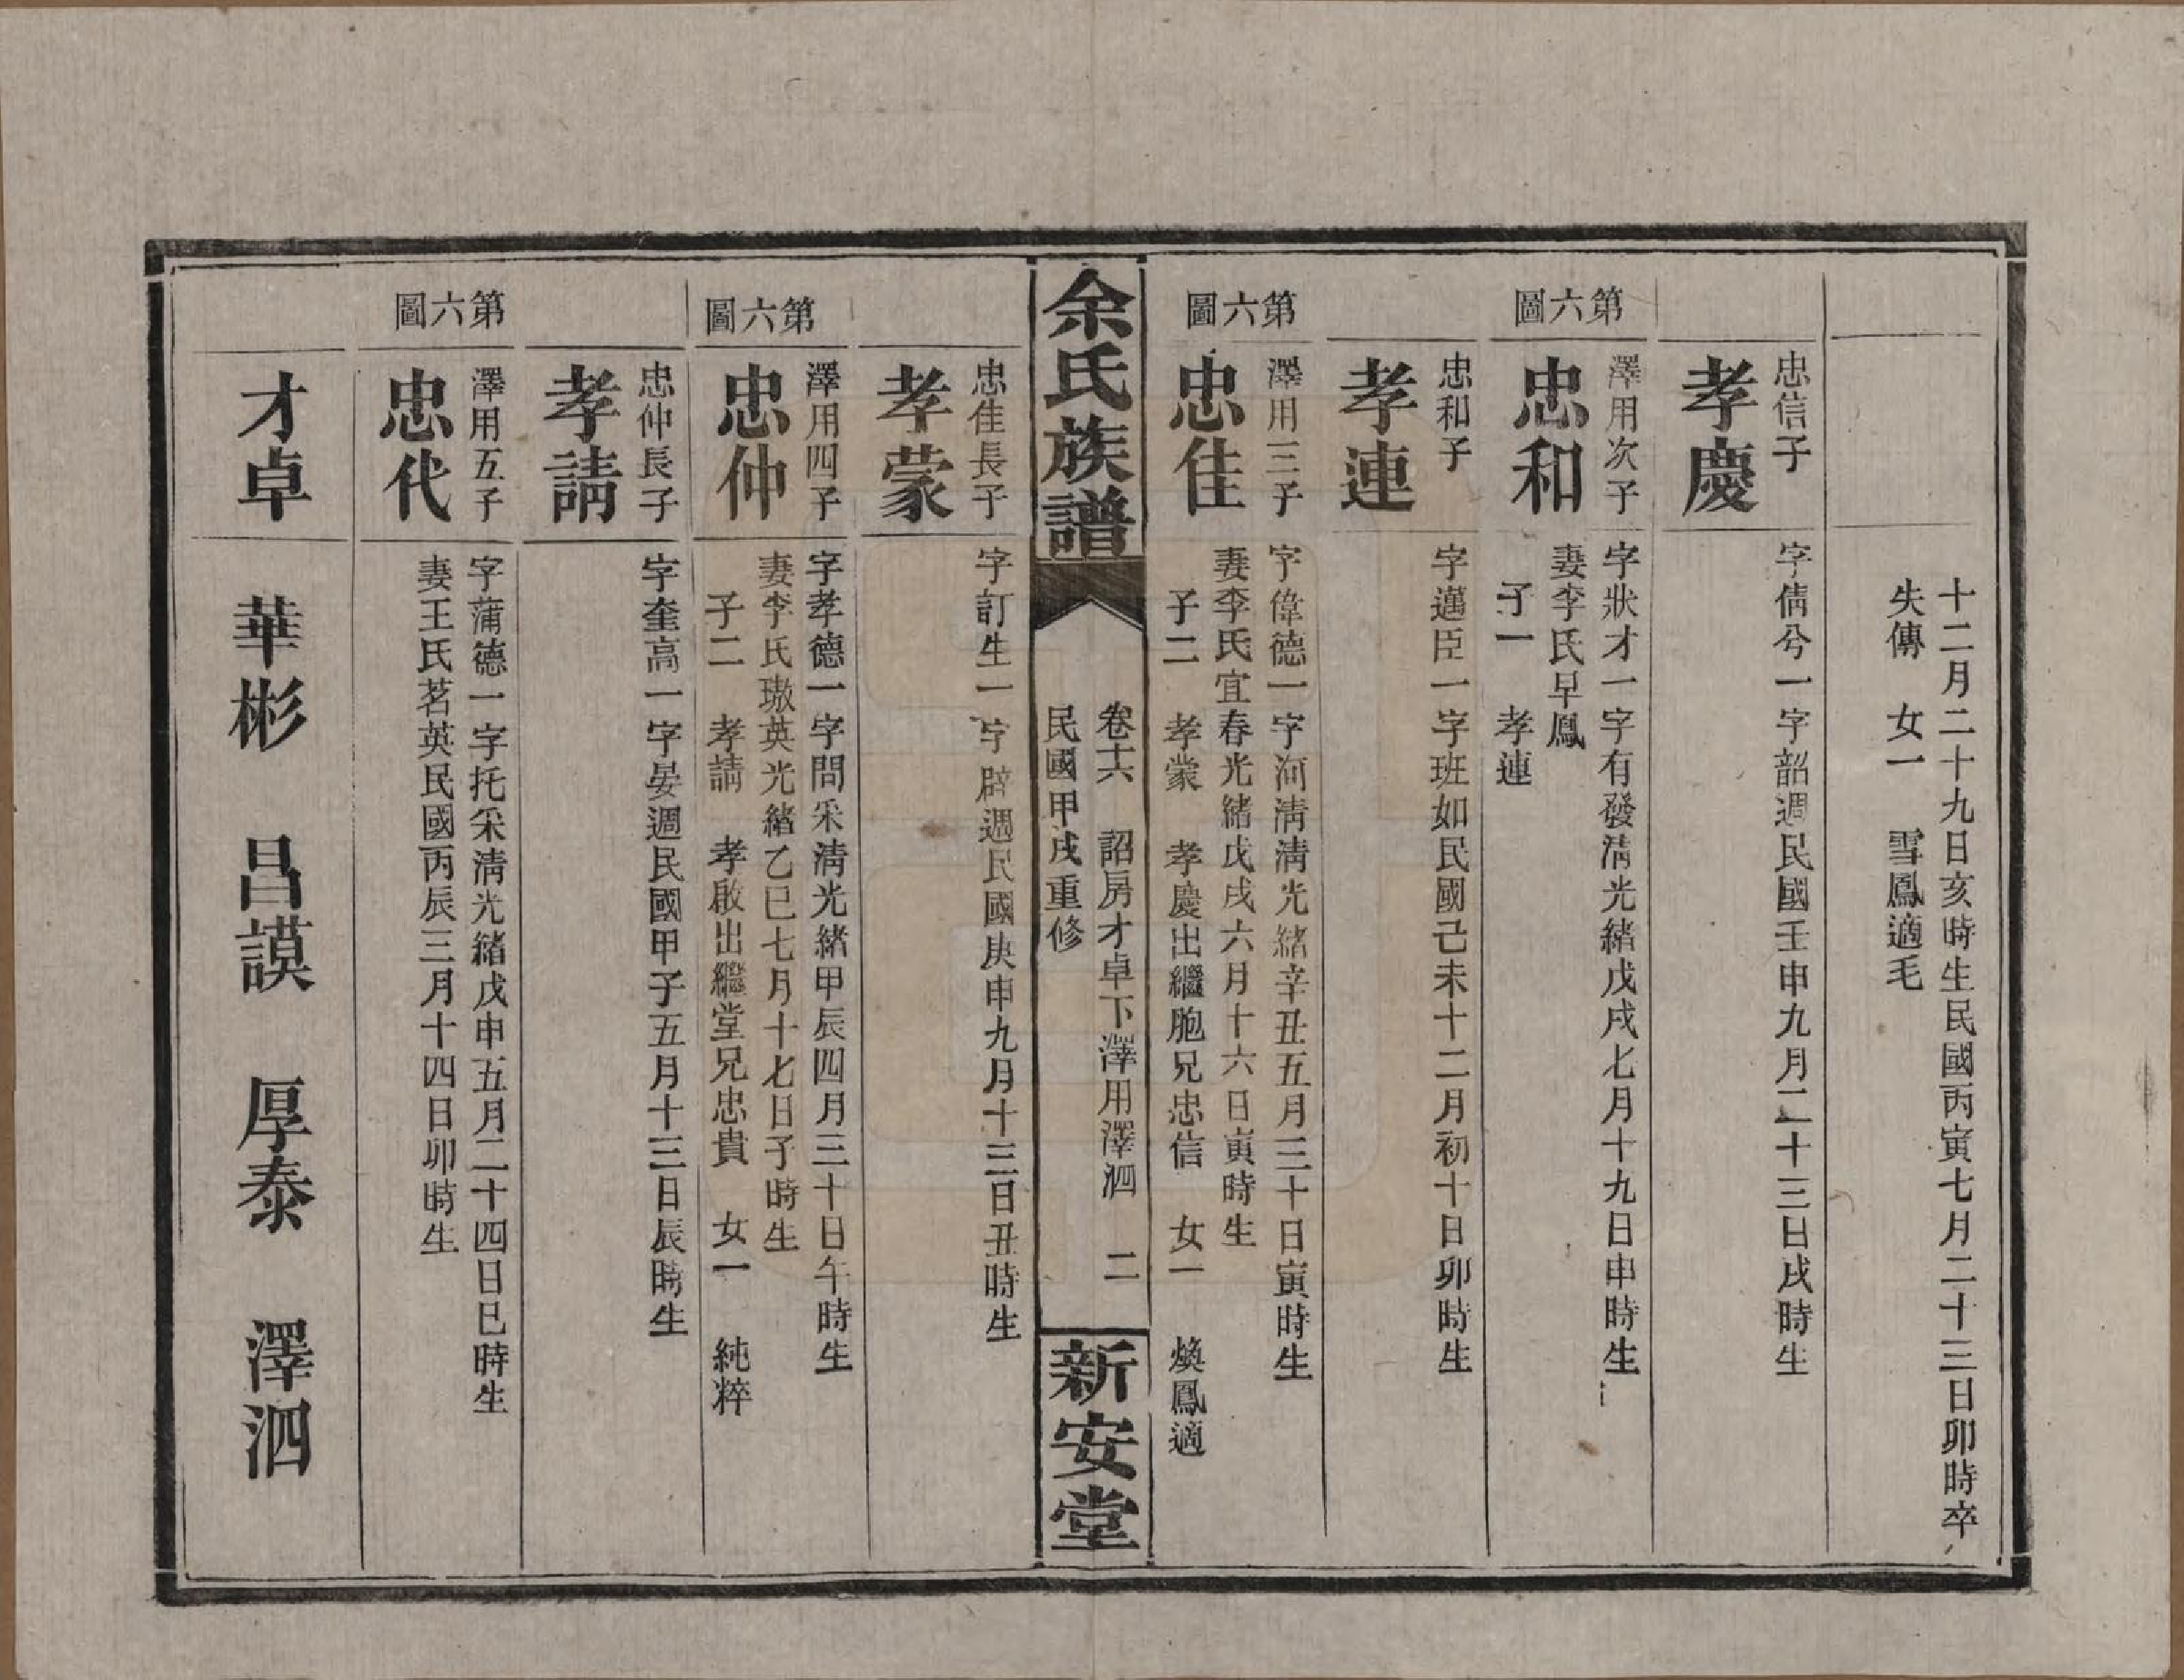 十二月二十九日亥時生民國丙寅七月二十三日卯時卒
失傳　女一　雪鳳適毛
忠信子
孝慶
字倩兮一字韶週民國壬申九月二十三日戌時生
第六圖
澤用次子
忠和
字狀才一字有發清光緒戊戌七月十九日申時生
妻李氏早鳳
子一　孝連
忠和子
孝連
字邁臣一字班如民國己未十二月初十日卯時生
第六圖
澤用三子
忠佳
字偉德一字河清清光緒辛丑五月三十日寅時生
妻李氏宜春光緒戊戌六月十六日寅時生
子二　孝蒙　孝慶出繼胞兄忠信　女一　煥鳳適
余氏族譜
卷十六　詔房才卓下澤用澤泗　二
民國甲戌重修
新安堂
忠佳長子
孝蒙
字訂生一字辟週民國庚申九月十三日丑時生
第六圖
澤用四子
忠仲
字孝德一字問采清光緒甲辰四月三十日午時生
妻李氏璈英光緒乙巳七月十七日子時生
子二　孝請　孝啟出繼堂兄忠貴　女一　純粹
忠仲長子
孝請
字奎高一字晏週民國甲子五月十三日辰時生
第六圖
澤用五子
忠代
字蒲德一字托采清光緒戊申五月二十四日巳時生
妻王氏茗英民國丙辰三月十四日卯時生
才卓
華彬　昌謨　厚泰　澤泗